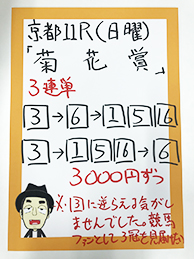 京都11R(日曜)
「菊花賞」
3連単
3→6→1 5 16
3→1 5 16→6
3000円ずつ
※3に逆らえる気がし
ませんでした。競馬
ファンとして3冠を見届けたい